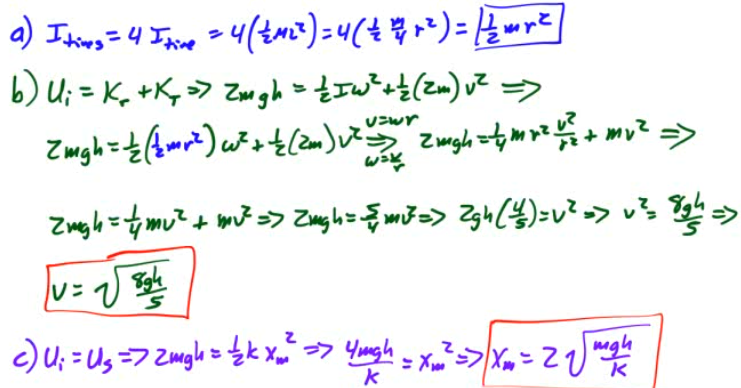 a) I_tires = 4 I_tire = 4(½Mr²) = 4(½ m/4 r²) = ½mr²
b) U_i = K_r + K_T => 2mgh = ½Iω² + ½(2m)v² =>
2mgh = ½(½mr²)ω² + ½(2m)v² v=ωr => ω=v/r 2mgh = ¼mr² v²/r² + mv² =>
2mgh = ¼mv² + mv² => 2mgh = 5/4 mv² => 2gh(4/5) = v² => v² = 8gh/5 =>
v = √(8gh/5)
c) U_i = U_s => 2mgh = ½k x_m² => 4mgh/k = x_m² => x_m = 2√(mgh/k)